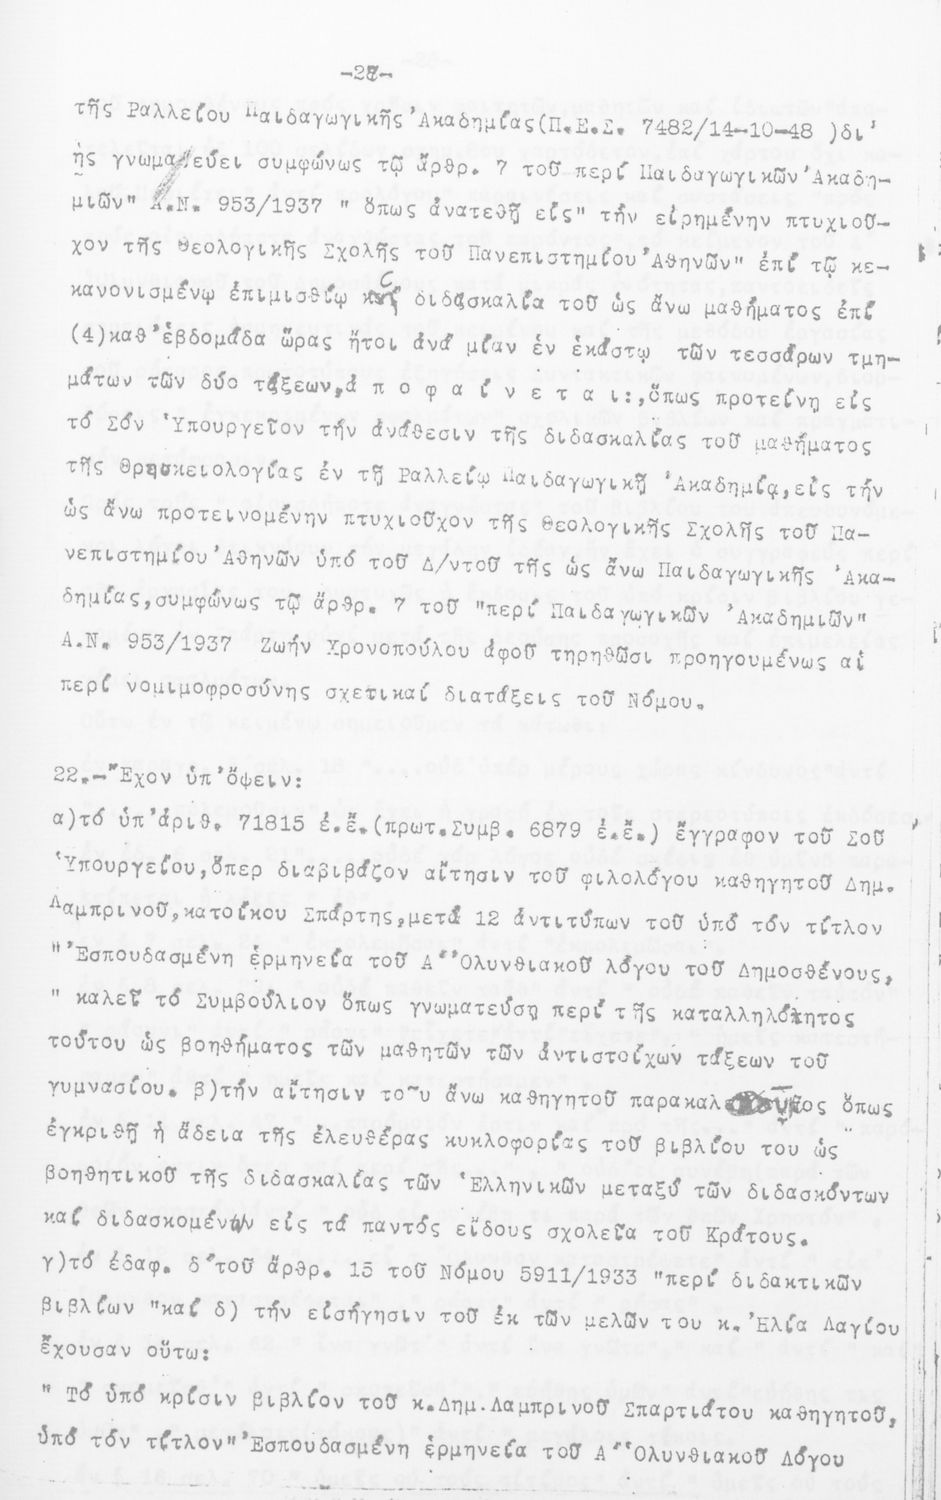 -28-
τῆς Ραλλείου Παιδαγωγικῆς Ἀκαδημίας(Π.Ε.Σ. 7482/14-10-48 )δι'
ἧς γνωματεύει συμφώνως τῷ ἄρθρ. 7 τοῦ περί Παιδαγωγικῶν Ἀκαδη-
μιῶν" Α.Ν. 953/1937 " ὅπως ἀνατεθῇ εἰς" τήν εἰρημένην πτυχιοῦ-
χον τῆς Θεολογικῆς Σχολῆς τοῦ Πανεπιστημίου Ἀθηνῶν" ἐπί τῷ κε-
κανονισμένῳ ἐπιμισθίῳ καί διδασκαλία τοῦ ὡς ἄνω μαθήματος ἐπί
(4)καθ'ἑβδομάδα ὥρας ἤτοι ἀνά μίαν ἐν ἑκάστῳ τῶν τεσσάρων τμη-
μάτων τῶν δύο τάξεων,ἀ π ο φ α ί ν ε τ α ι:,ὅπως προτείνῃ εἰς
τό Σόν Ὑπουργεῖον τήν ἀνάθεσιν τῆς διδασκαλίας τοῦ μαθήματος
τῆς Θρησκειολογίας ἐν τῇ Ραλλείῳ Παιδαγωγικῇ Ἀκαδημίᾳ,εἰς τήν
ὡς ἄνω προτεινομένην πτυχιοῦχον τῆς Θεολογικῆς Σχολῆς τοῦ Πα-
νεπιστημίου Ἀθηνῶν ὑπό τοῦ Δ/ντοῦ τῆς ὡς ἄνω Παιδαγωγικῆς Ἀκα-
δημίας,συμφώνως τῷ ἄρθρ. 7 τοῦ "περί Παιδαγωγικῶν Ἀκαδημιῶν"
Α.Ν. 953/1937 Ζωήν Χρονοπούλου ἀφοῦ τηρηθῶσι προηγουμένως αἱ
περί νομιμοφροσύνης σχετικαί διατάξεις τοῦ Νόμου.
22.-Ἔχον ὑπ'ὄψειν:
α)τό ὑπ'ἀριθ. 71815 ἐ.ἔ.(πρωτ.Συμβ. 6879 ἐ.ἔ.) ἔγγραφον τοῦ Σοῦ
Ὑπουργείου,ὅπερ διαβιβάζον αἴτησιν τοῦ φιλολόγου καθηγητοῦ Δημ.
Λαμπρινοῦ,κατοίκου Σπάρτης,μετά 12 ἀντιτύπων τοῦ ὑπό τόν τίτλον
"Ἐσπουδασμένη ἑρμηνεία τοῦ Α΄Ὀλυνθιακοῦ λόγου τοῦ Δημοσθένους,
" καλεῖ τό Συμβούλιον ὅπως γνωματεύσῃ περί τῆς καταλληλότητος
τούτου ὡς βοηθήματος τῶν μαθητῶν τῶν ἀντιστοίχων τάξεων τοῦ
γυμνασίου. β)τήν αἴτησιν το~υ ἄνω καθηγητοῦ ὅπως
ἐγκριθῇ ἡ ἄδεια τῆς ἐλευθέρας κυκλοφορίας τοῦ βιβλίου του ὡς
βοηθητικοῦ τῆς διδασκαλίας τῶν Ἑλληνικῶν μεταξύ τῶν διδασκόντων
καί διδασκομένων εἰς τά παντός εἴδους σχολεῖα τοῦ Κράτους.
γ)τό ἐδαφ. δ΄τοῦ ἄρθρ. 15 τοῦ Νόμου 5911/1933 "περί διδακτικῶν
βιβλίων "καί δ) τήν εἰσήγησιν τοῦ ἐκ τῶν μελῶν του κ.Ἠλία Λαγίου
ἔχουσαν οὕτω:
" Τό ὑπό κρίσιν βιβλίον τοῦ κ.Δημ.Λαμπρινοῦ Σπαρτιάτου καθηγητοῦ,
ὑπό τόν τίτλον"Ἐσπουδασμένη ἑρμηνεία τοῦ Α΄Ὀλυνθιακοῦ Λόγου